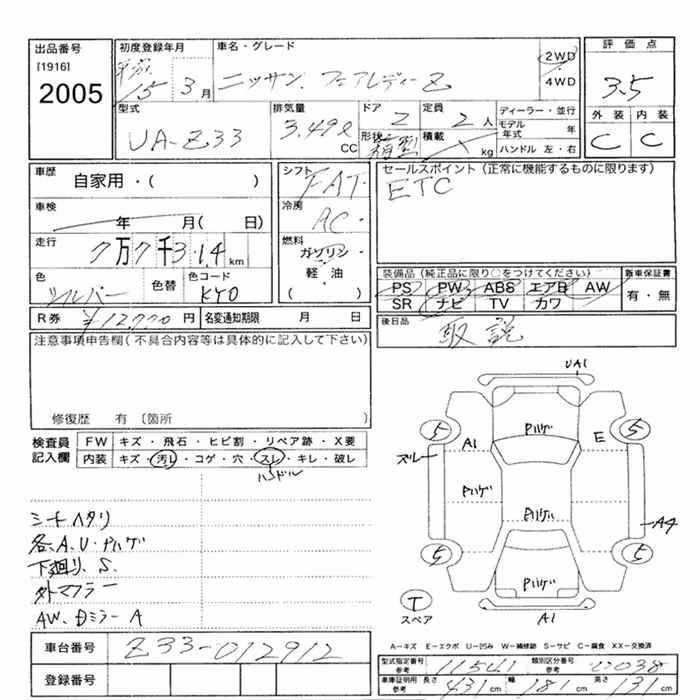 出品番号
[1916]
2005
初度登録年月
平成 15 3 月
車名・グレード
ニッサン. フェアレディーZ
2WD
4WD
評価点
3.5
外装 内装
C C
型式
UA-Z33
排気量
3.49ℓ
CC
ドア 2
形状 箱型
定員 2 人
積載 kg
ディーラー・並行
モデル年式 年
ハンドル 左・右
車歴
自家用・( )
車検
年 月( 日)
走行
7万7千314km
色
シルバー
色替
色コード
KY0
シフト
FAT.
冷房
AC.
燃料
ガソリン・
軽・油・
( )
セールスポイント(正常に機能するものに限ります)
ETC
装備品(純正品に限り○をつけてください)
PS PW ABS エアB AW
SR ナビ TV カワ
新車保証書
有・無
R券 ¥12,770 円 名変通知期限 月 日
後日品
取説
注意事項申告欄(不具合内容等は具体的に記入して下さい)
修復歴 有〔箇所 〕
検査員記入欄
FW キズ・飛石・ヒビ割・リペア跡・X要
内装 キズ・汚レ・コゲ・穴・スレ・キレ・破レ
ハンドル
シートヘタリ
各、A、U・Pハゲ
下廻り、S.
外マフラー
AW、Dミラー A
UA1
Pハゲ
5 5
A1 E
ズレー
Pハゲ
Pハゲ
A4
5 5
Pハゲ
T
スペア
A1
A-キズ E-エクボ U-凹み W-補修跡 S-サビ C-腐食 XX-交換済
車台番号 Z33-012912
登録番号
型式指定番号 参考 11541 類別区分番号 参考 0038
車庫証明用 参考 長さ 431 cm 幅 181 cm 高さ 131 cm